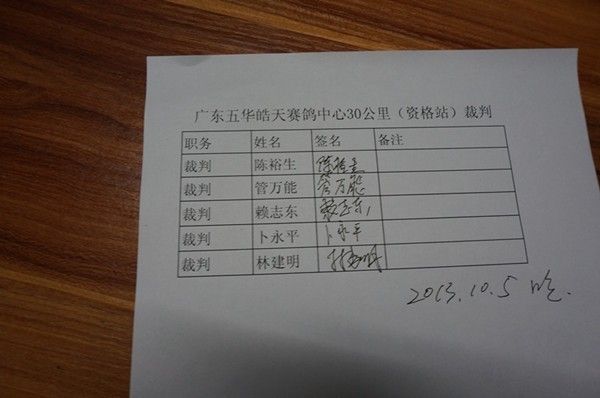 广东五华皓天赛鸽中心30公里（资格站）裁判
职务 姓名 签名 备注
裁判 陈裕生 陈裕生
裁判 管万能 管万能
裁判 赖志东 赖志东
裁判 卜永平 卜永平
裁判 林建明 林建明
2013.10.5